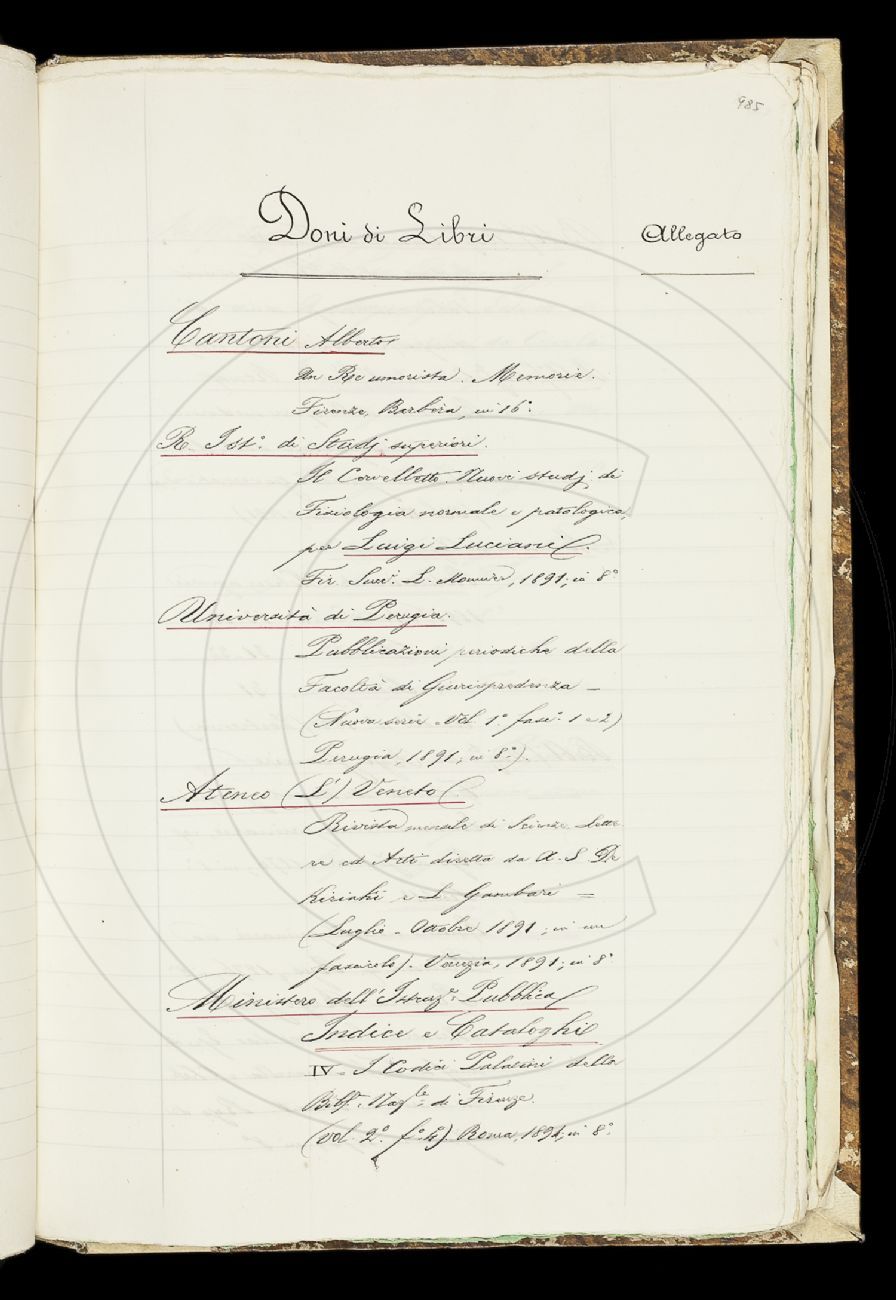 985
Doni di Libri
Allegato
Cantoni Alberto
Un Re umorista. Memorie.
Firenze, Barbèra, in 16°.
R. Ist°. di Studj superiori.
Il Cervelletto. Nuovi studj di
Fisiologia normale e patologica,
per Luigi Luciani.
Fir. Succ. L. Monnier, 1891; in 8°
Università di Perugia.
Pubblicazioni periodiche della
Facoltà di Giurisprudenza _
(Nuova serie - Vol. 1° fasc. 1 e 2)
Perugia, 1891; in 8°).
Ateneo (L') Veneto
Rivista mensile di Scienze Lette
re ed Arti diretta da A. S. De
Kiriaki e L. Gambari =
(Luglio - Ottobre 1891; in un
fascicolo). Venezia, 1891; in 8°
Ministero dell'Istruz.e Pubblica
Indici e Cataloghi
IV - I Codici Palatini della
Bibl. Naz.le di Firenze.
(vol. 2°. f°. 4) Roma, 1891; in 8°.